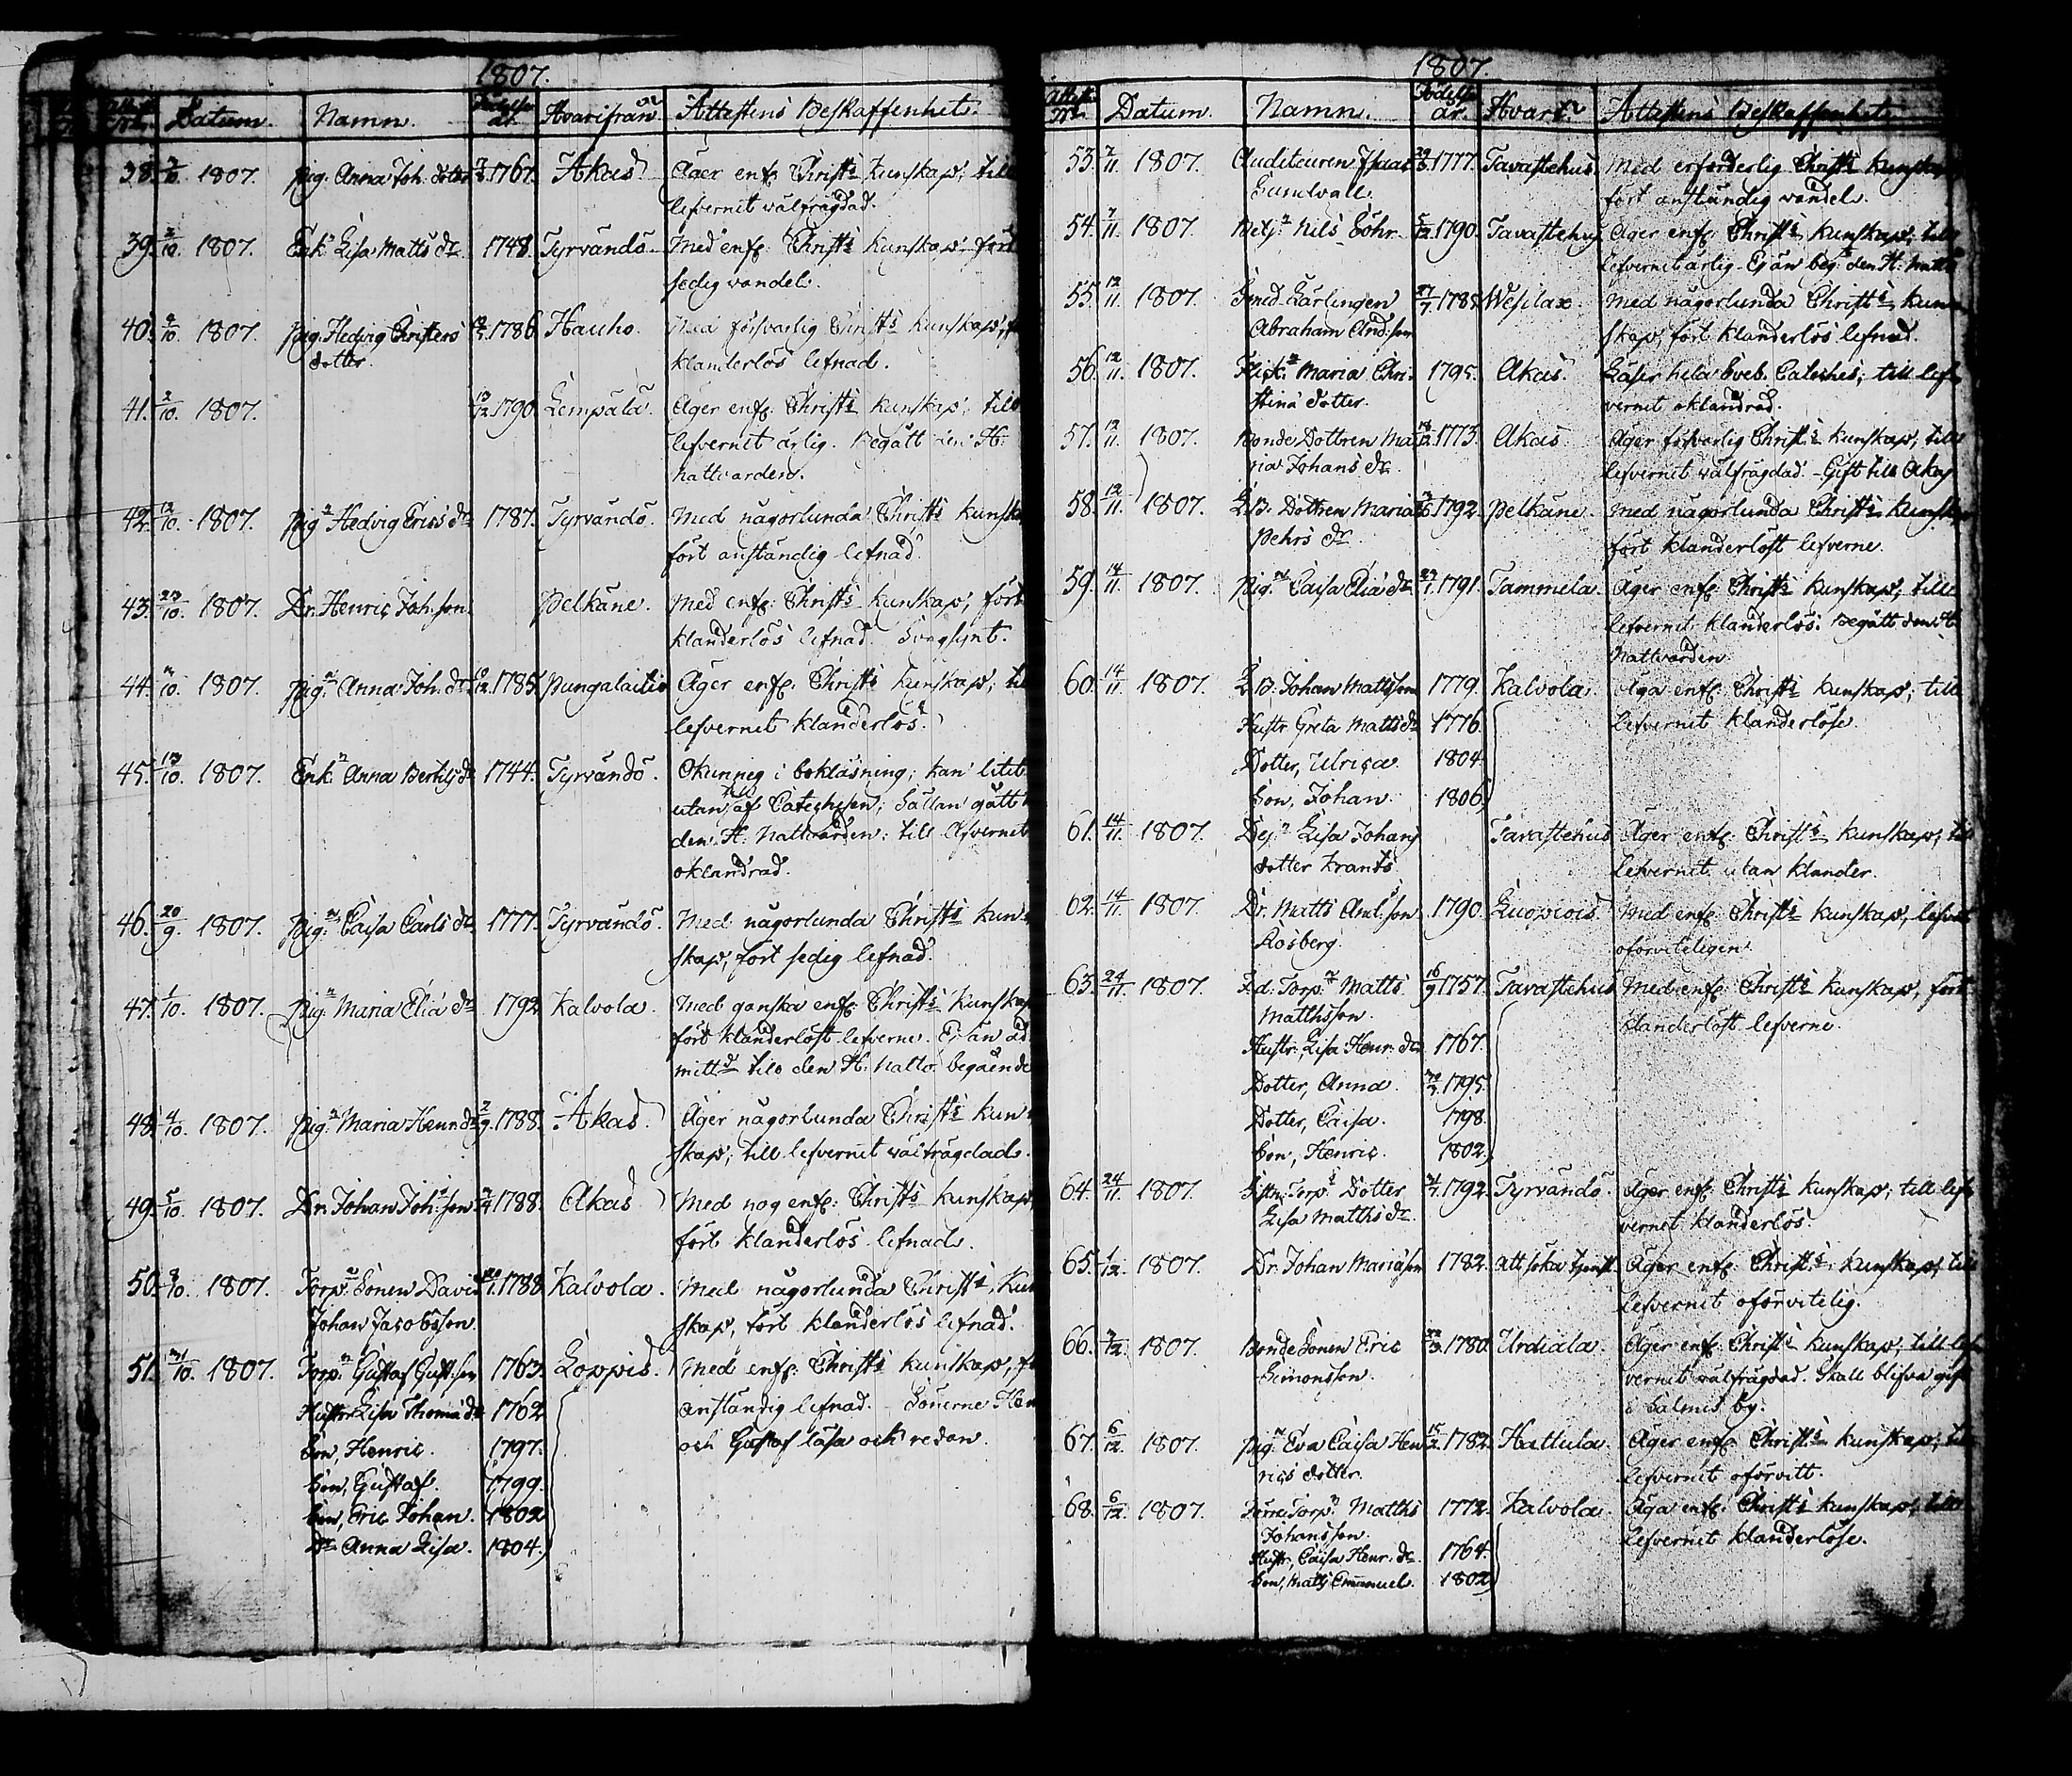 1807.
Datum. Namn. Födelse år. Hvarifrån Attestens Beskaffenhet.
38. 2/10. 1807. Pig. Anna Joh. dotter 1767. Akas Äger enf. Christs kunskap; till
lefvernet välfrägdad.
39. 2/10. 1807. Enk. Lisa Matts dr 1748. Tyrvändö Med enf. Christs kunskap fört
sedig vandel.
40. 2/10. 1807. Pig. Hedvig Christers 1786. Hauho. Med försvarlig Christs kunskap,
dotter. klanderlös lefnad.
41. 2/10. 1807. 13/12 1790. Lempäla. Äger enf. Christs kunskap; till
lefvernet ärlig. Begått den H:
nattvarden.
42. 12/10. 1807. Pig. Hedvig Erics dr 1787. Tyrvändö. Med någorlunda Christs kunskap
fört anständig lefnad.
43. 23/10. 1807. Dr. Henric Joh. son. Pelkäne. Med enf. Christs kunskap, fört
klanderlös lefnad. Svagsynt.
44. 1807. Pig. Anna Joh. dr 1785. Pungalaitio Äger enf. Christs kunskap; till
lefvernet klanderlös.
45. 13/10. 1807. Enk. Anna Bertils dr 1744. Tyrvändö. Okunnig i bokläsning; kan litet
utan af Catechesen; sällan gått
den H. Nattvarden: till lefvernet
oklandrad.
46. 20/9. 1807. Pig. Caisa Carls dr 1777. Tyrvändö. Med någorlunda Christs kun-
skap, fört sedig lefnad.
47. 1/10. 1807. Pig. Maria Elia dr 1792 Kalvola. Med ganska enf. Christs kunskap
fört klanderlöst lefverne. Ej än ad
mitt. till den H. Nattv. begående
48. 4/10. 1807. Pig. Maria Henr. dr 2/9. 1788. Akas Äger någorlunda Christs kun-
skap; till lefvernet välfrägdad.
49. 5/10. 1807. Dr. Johan Joh. son 1788. Akas Med nog enf. Christs kunskap
fört klanderlös lefnad.
50. 9/10. 1807. Torp. Sonen David 1788 Kalvola. Med någorlunda Christs Kun
Johan Jacobsson. skap, fört klanderlös lefnad.
51. 31/10. 1807. Torp. Gustaf Gust. son 1763. Loppis. Med enf. Christs kunskap,
Hustr Lisa Thomæ dr 1762 anständig lefnad. Sönerne Hen
Son, Henric. 1797. och Gustaf läsa ock redan.
Son, Gustaf. 1799.
Son, Eric Johan. 1802
Dr Anna Lisa. 1804.
1807.
Attest Nr. Datum. Namn. Födelse år. Hvart Attestens Beskaffenhet.
53. 7/11. 1807. Auditeuren Isaac 1777. Tavastehus Med erforderlig Christs kunskap
Sundvall. fört anständig vandel.
54. 7/11. 1807. Betj. Nils Böhr 1790. Tavastehus Äger enf. Christs kunskap; till
lefvernet ärlig. Ej än beg. den H. Nattv
55. 12/11. 1807. Smed Lärlingen 27/7 1788. Wesilax. Med någorlunda Christs kun-
Abraham And. son skap, fört klanderlös lefnad.
56. 12/11. 1807. Flick. Maria Chri- 1795. Akas. Läser hela Sveb. Cateches; till lef-
stinæ dotter. vernet oklandrad.
57. 12/11. 1807. Bonde Dottren Ma 1773. Akas Äger försvarlig Christs kunskap; till
ria Johans dr. lefvernet välfrägdad. Gift till Akas
58. 12/11. 1807. Dottren Maria 1792. Pelkäne. Med någorlunda Christs kunskap
Pehrs dr. fört klanderlöst lefverne.
59. 14/11. 1807. Pig. Caisa Elia dr 1791. Tammela. Äger enf. Christs kunskap; till
lefvernet klanderlös. Begått den H.
Nattvarden.
60. 14/11. 1807. Johan Mattsson 1779. Kalvola. Äga enf. Christs kunskap; till
Hustr Greta Matts dr 1776. lefvernet klanderlöse.
Dotter, Ulrica. 1804.
Son, Johan. 1806.
61. 14/11. 1807. Dej. Lisa Johans Tavastehus Äger enf. Christs kunskap; till
dotter Krants lefvernet utan klander.
62. 14/11. 1807. Dr. Matts son 1790. Luopiois. Med enf. Christs kunskap, lefvat
Rosberg. oförviteligen.
63. 24/11. 1807. F.d. Torp. Matts 16/9 1757. Tavastehus Med enf. Christs kunskap, fört
Matthsson. klanderlöst lefverne.
Hustr. Lisa Henr. dr 1767.
Dotter, Anna. 1795.
Dotter, Caisa. 1798.
Son, Henric. 1802.
64. 24/11. 1807. Torp. Dotter 1792. Tyrvändö. Äger enf. Christs kunskap; till lef-
Lisa Matths dr. vernet klanderlös.
65. 1/12. 1807. Dr. Johan Mariæ son 1782. att söka tjenst. Äger enf. Christs kunskap; till
lefvernet oförvitelig.
66. 1807. Bonde Sonen Eric 1780. Urdiala. Äger enf. Christs kunskap; till lef-
Simonsson. vernet välfrägdad. Skall blifva gift
i Salmis by.
67. 6/12. 1807. Pig. Eva Caisa Hen 1782. Hattula. Äger enf. Christs kunskap; till
rics dotter. lefvernet oförvitt.
68. 6/12. 1807. Torp. Matths 1772. Kalvola. Äga enf. Christs kunskap; till
Johansson. lefvernet klanderlöse.
Hustr, Caisa Henr. dr. 1764.
Son, Matts Emanuel. 1802